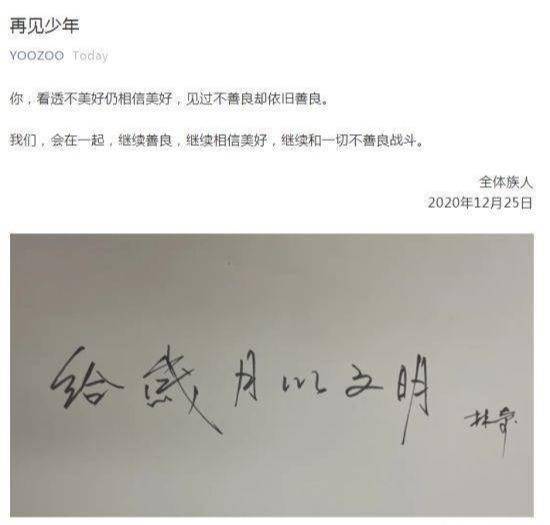 再见少年
YOOZOO Today
你，看透不美好仍相信美好，见过不善良却依旧善良。
我们，会在一起，继续善良，继续相信美好，继续和一切不善良战斗。
全体族人
2020年12月25日
给岁月以文明
林奇